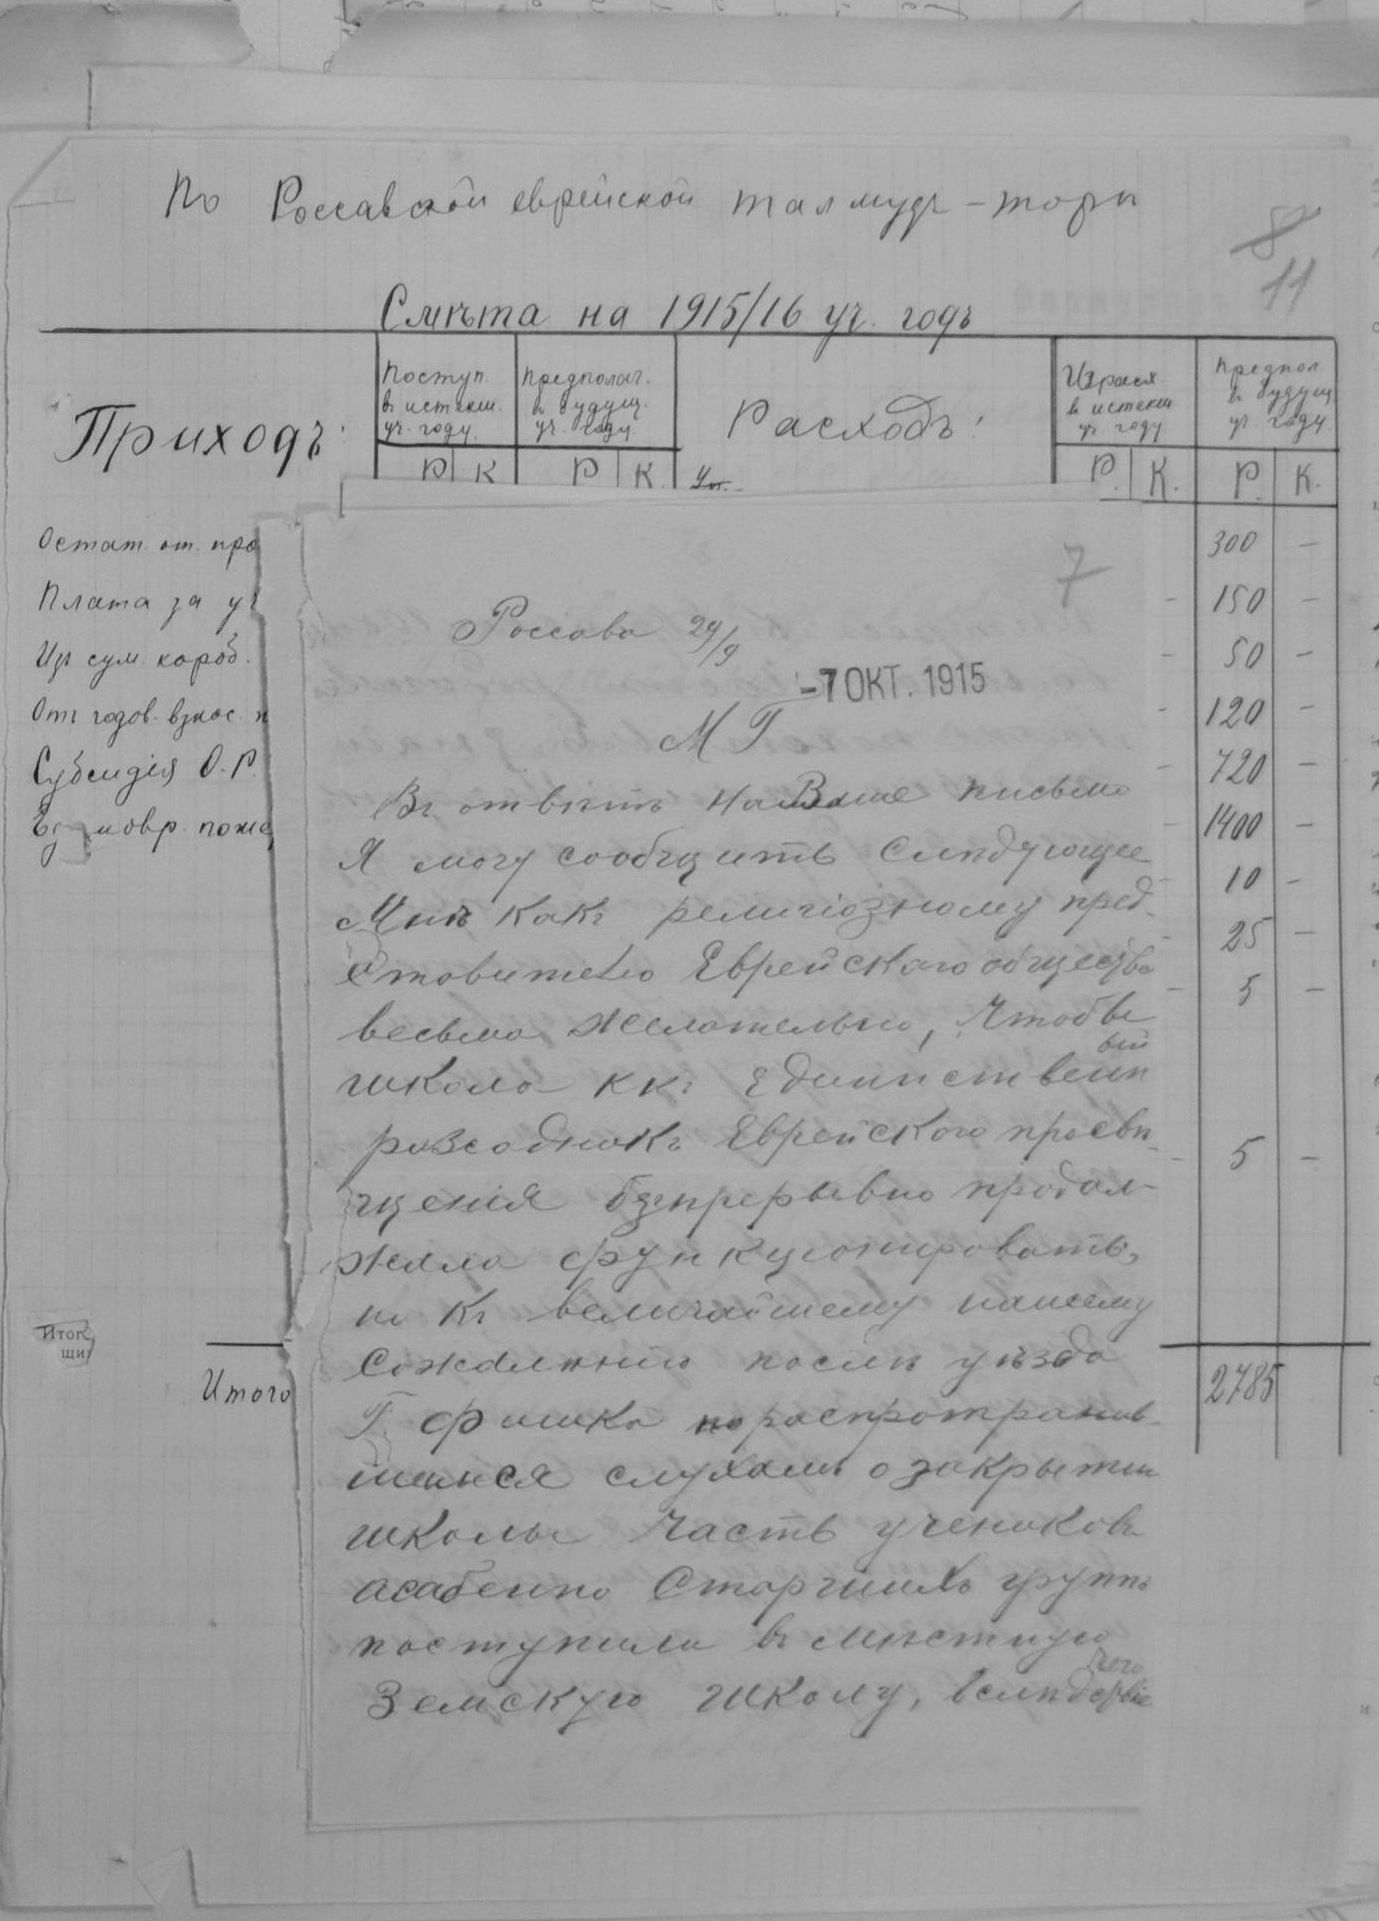 По Россавской еврейской талмудъ-торѣ
8
11
Смѣта на 1915/16 уч. годъ
Приходъ:
Поступ. въ истекш. уч. году.
Предполаг. въ будущ. уч. году
Расходъ:
Израсх. въ истекш. уч. году
Предпол. въ будущ. уч. году
Р К Р К. Р. К. Р. К.
Остат. от. про
Плата за уч
Изъ сум. короб.
Отъ годов. взнос. п
Субсидія О. Р.
мовр. поже
Итог
щи
Итого
300 –
150 –
50 –
120 –
720 –
1400 –
10 –
25 –
5 –
5 –
2785
7
Россава 29/9
-7 ОКТ. 1915
М Г
Въ отвѣтъ на Ваше письмо
Я могу сообщить Слѣдующее
Мнѣ какъ религіозному пред-
ставителю Еврейскаго общества
весьма желательно, Чтобы
школа ккъ Единственный
разсадникъ Еврейского просвѣ-
щенія безпрерывно продол-
жала функционировать,
но Къ величайшему нашему
Сожалѣнию послѣ уѣзда
Г. Фишка по распротранив-
шимся слухамъ о закрытии
школы Часть учениковъ
асабенно Старшихъ группъ
поступила въ мѣстную
Земскую школу, вслѣдствіе чего